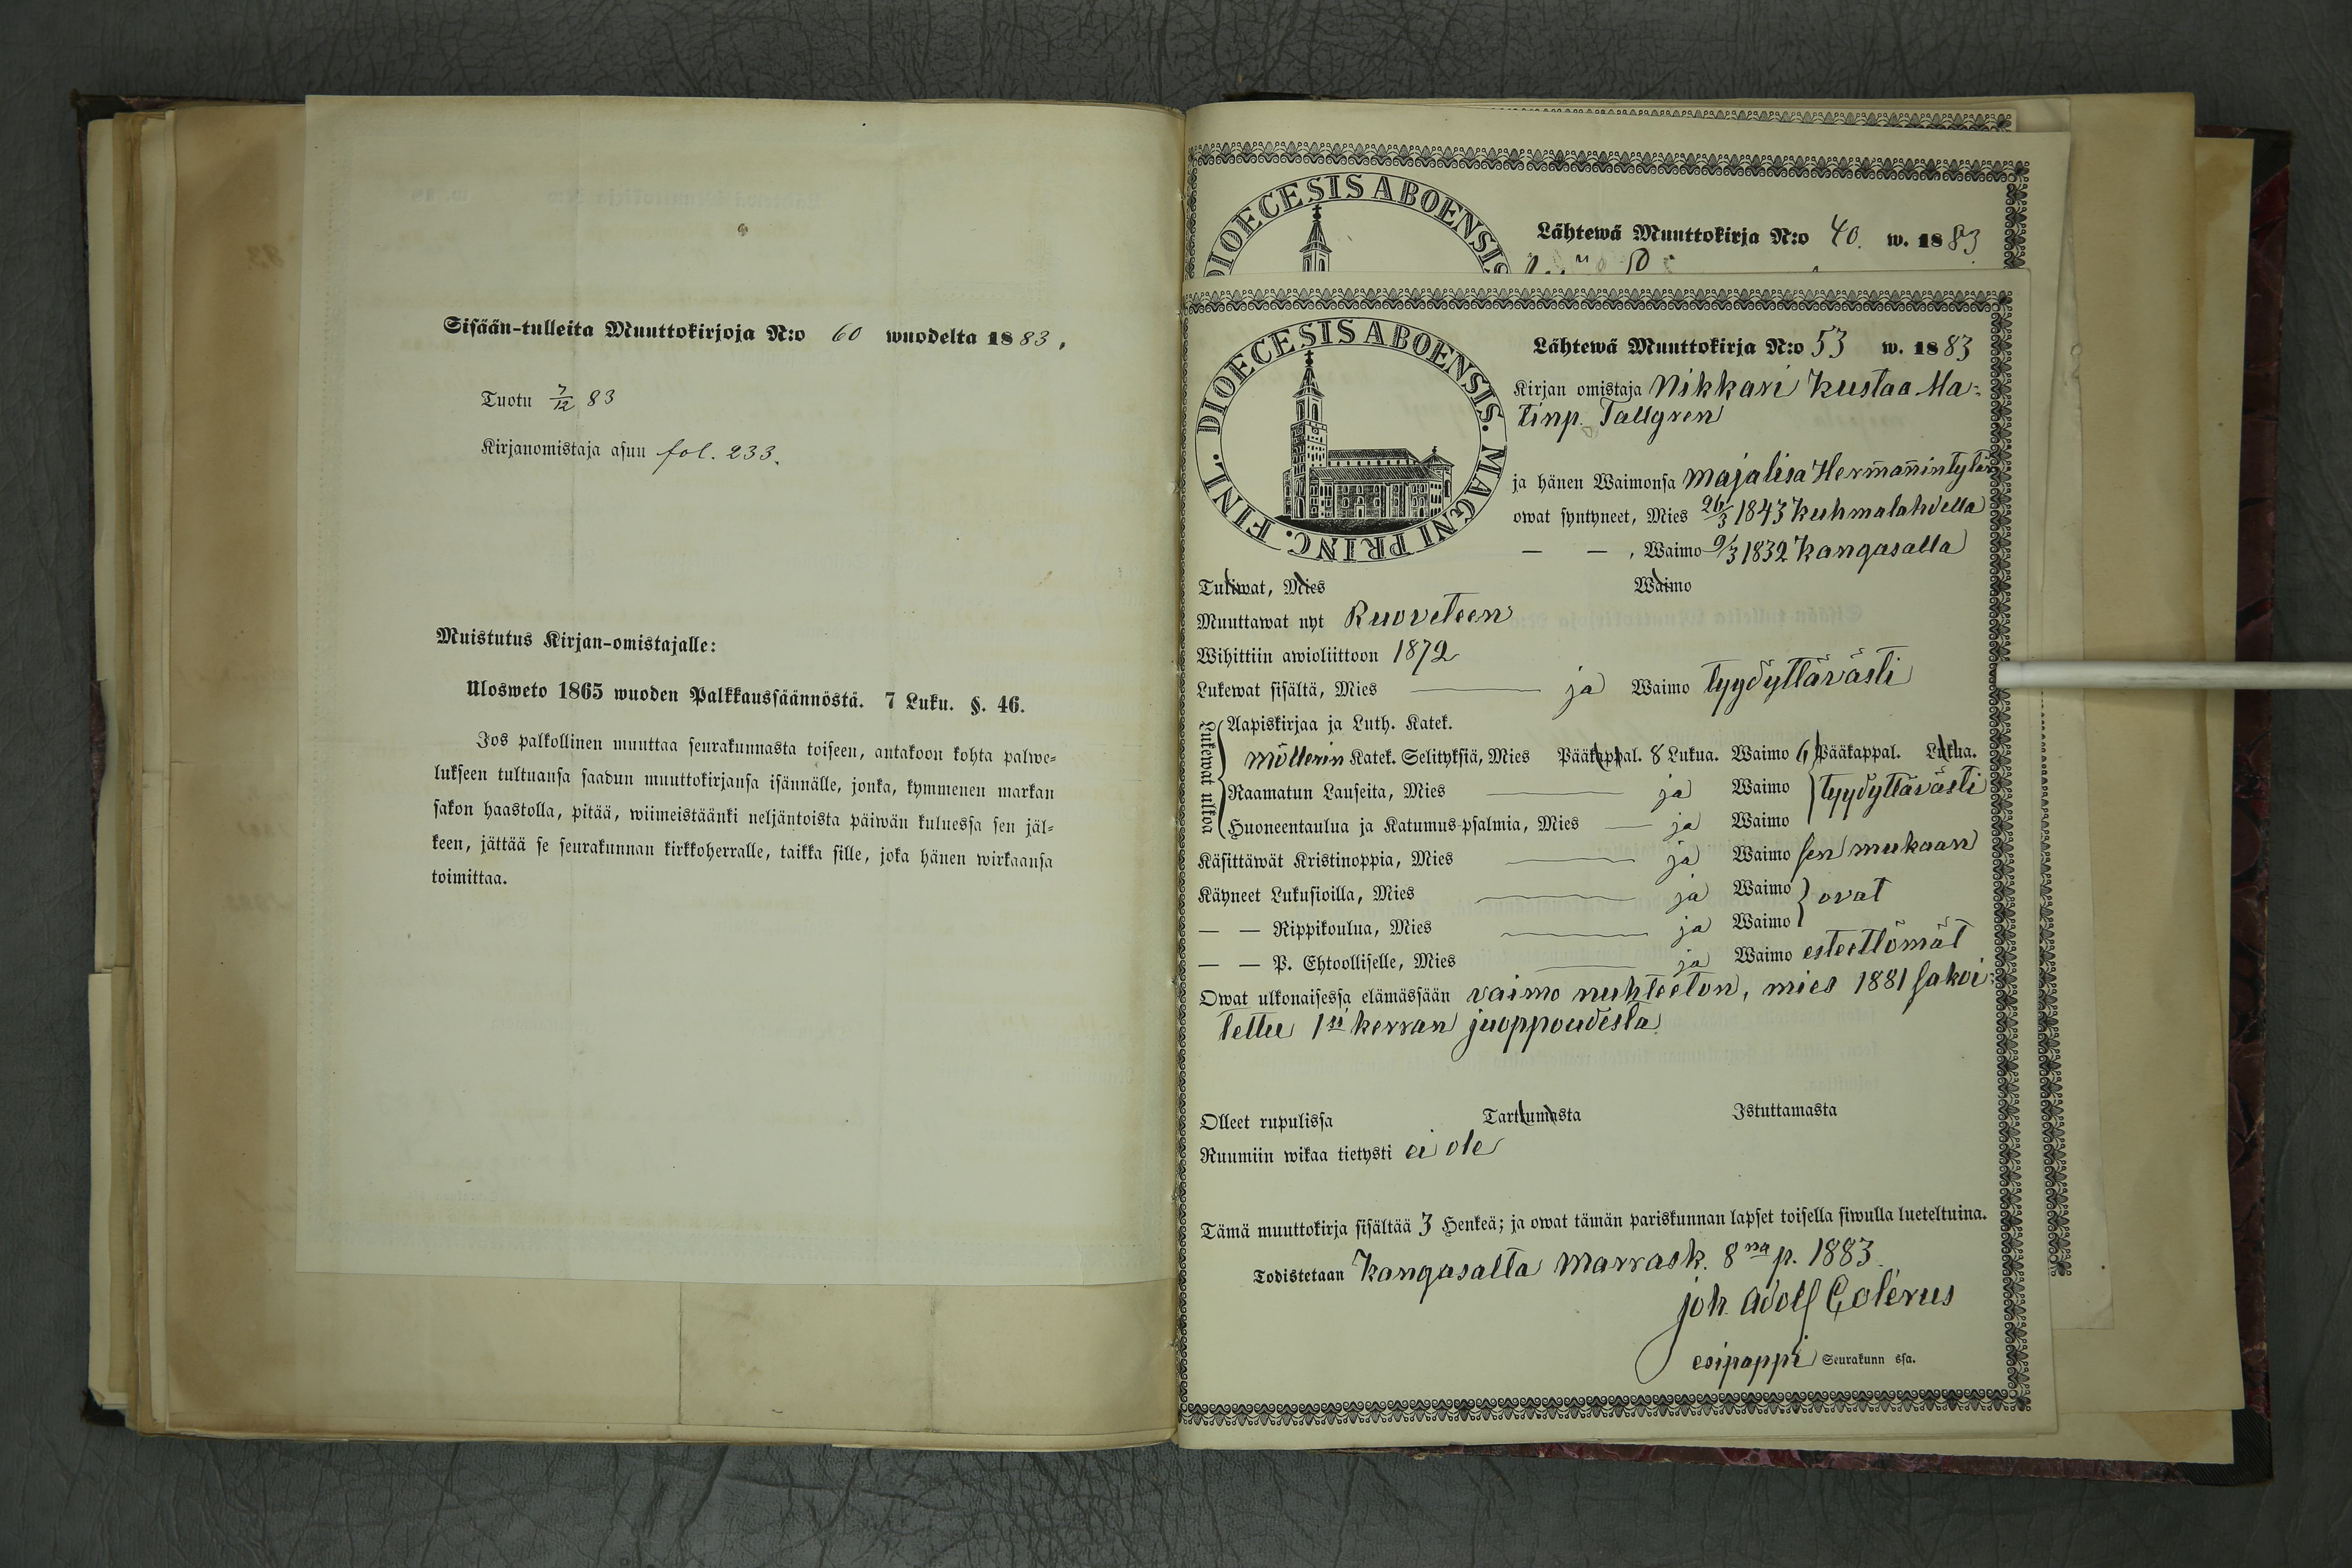 Sisään-tulleita Muuttokirjoja N:o 60 wuodelta 1883,
Tuotu 7/12 83
Kirjanomistaja asuu fol. 233.
Muistutus Kirjan-omistajalle:
Ulosweto 1865 wuoden Palkkaussäännöstä. 7 Luku. §. 46.
Jos palkollinen muuttaa seurakunnasta toiseen, antakoon kohta palwe-
lukseen tultuansa saadun muuttokirjansa isännälle, jonka, kymmenen markan
sakon haastolla, pitää, wiimeistäänki neljäntoista päiwän kuluessa sen jäl-
keen, jättää se seurakunnan kirkkoherralle, taikka sille, joka hänen wirkaansa
toimittaa.
DIOECESIS ABOENSIS
Lähtewä Muuttokirja N:o 40. w. 1883
DIOECESIS ABOENSIS. MAGNI PRINC. FINL.
Lähtewä Muuttokirja N:o 53 w. 1883
Kirjan omistaja Nikkari Kustaa Ma-
tinp. Tallgren
ja hänen Waimonsa Majalisa Hermannintytär
owat syntyneet, Mies 26/3 1843 Kuhmalahdella
— — , Waimo 9/3 1832 Kangasalla
Tuliwat, Mies Waimo
Muuttawat nyt Ruoveteen
Wihittiin awioliittoon 1872
Lukewat sisältä, Mies ja Waimo tyydyttävästi
Lukewat ulkoa
Aapiskirjaa ja Luth. Katek.
Möllerin Katek. Selityksiä, Mies Pääkappal. 8 Lukua. Waimo 6 Pääkappal. Lukua.
Raamatun Lauseita, Mies ja Waimo tyydyttävästi
Huoneentaulua ja Katumus-psalmia, Mies ja Waimo
Käsittäwät Kristinoppia, Mies ja Waimo sen mukaan
Käyneet Lukusioilla, Mies ja Waimo ovat
— — Rippikoulua, Mies ja Waimo
— — P. Ehtoolliselle, Mies ja Waimo esteettömät
Owat ulkonaisessa elämässään vaimo nuhteeton, mies 1881 sakoi-
tettu 1si kerran juoppoudesta
Olleet rupulissa Tarttumasta Istuttamasta
Ruumiin wikaa tietysti ei ole
Tämä muuttokirja sisältää 3 Henkeä; ja owat tämän pariskunnan lapset toisella siwulla lueteltuina.
Todistetaan Kangasalta Marrask. 8na p. 1883.
Joh. Adolf Colérus
esipappi Seurakunn ssa.